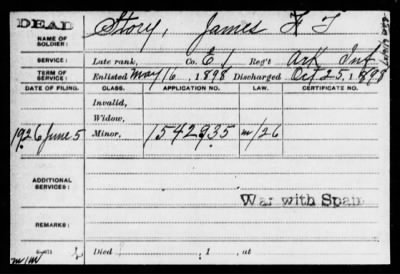 DEAD
NAME OF SOLDIER: Story, James F T
SERVICE: Late rank, Co. E 1 Reg't Ark Inf
TERM OF SERVICE: Enlisted May 16, 1898 Discharged Oct 25, 1898
DATE OF FILING. CLASS. APPLICATION NO. LAW. CERTIFICATE NO.
Invalid,
Widow,
1926 June 5 Minor, 1542935 m/26
ADDITIONAL SERVICES:
War with Spain
REMARKS:
Died , 1 , at